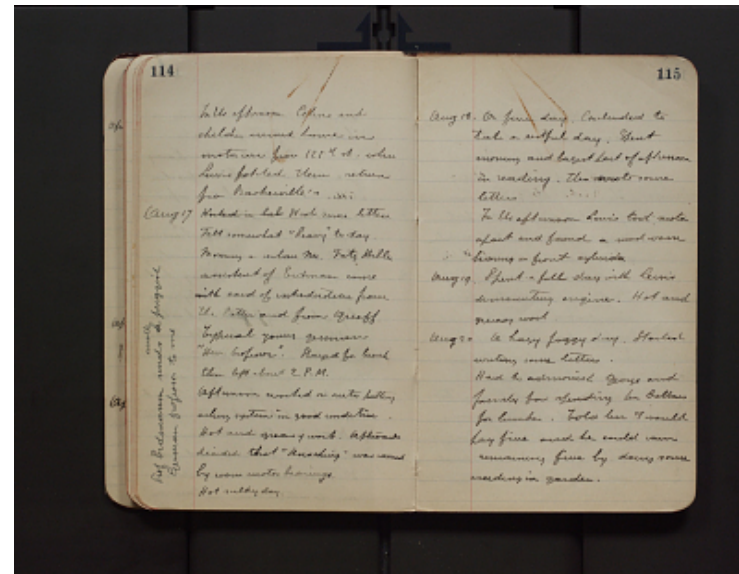 114
In the afternoon Celine and
children arrived home in
motor car from 127th st. where
Lewis fetched them, return
from
Aug 17 Worked in lab. Read some letters
Felt somewhat "heavy" to day.
Morning a when Mr. Fritz Hille
assistant of Erdmann came
with card of introduction from
Dr. and from Greeff
Typical young german
"Herr Professor". Stayed for lunch
then left about 2 P.M.
Afternoon worked on auto putting
system in good condition.
Hot and greasy work. Afterwards
decided that "knocking" was caused
by worn motor bearings
Hot sultry day.
Prof Erdmann usually sends de
German professor to me
115
Aug 18. A fine day. Contended to
take a restful day. Spent
morning and largest part of afternoon
in reading. Then wrote some
letters
In the afternoon Lewis took motor
apart and found a much worn
bearing in front cylinder
Aug 19. Spent a full day with Lewis
dismounting engine. Hot and
greasy work
Aug 20. A hazy foggy day. Started
writing some letters.
Had to admonish George and
for spending ten Dollars
for lumber. Told her I would
pay five and he could earn
remaining five by doing some
weeding in garden.